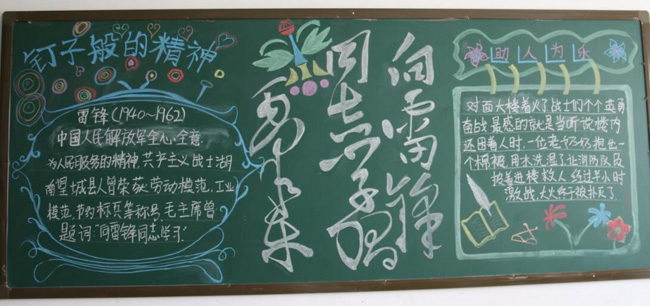 钉子般的精神
雷锋(1940~1962)
中国人民解放军全心,全意
为人民服务的精神,共产主义战士湖
南望城县人曾荣获劳动模范,工业
模范,节约标兵等称号,毛主席曾
题词:“向雷锋同志学习”
向雷锋
同志学习
毛泽东
助人为乐
对面大楼着火了战士们个个英勇
奋战最感的就是当听说楼内
还困着人时,一位老 抱出一
个棉被,用水洗湿了让消防队员
披着进楼救人 经过半小时
激战,大火终于被扑灭了